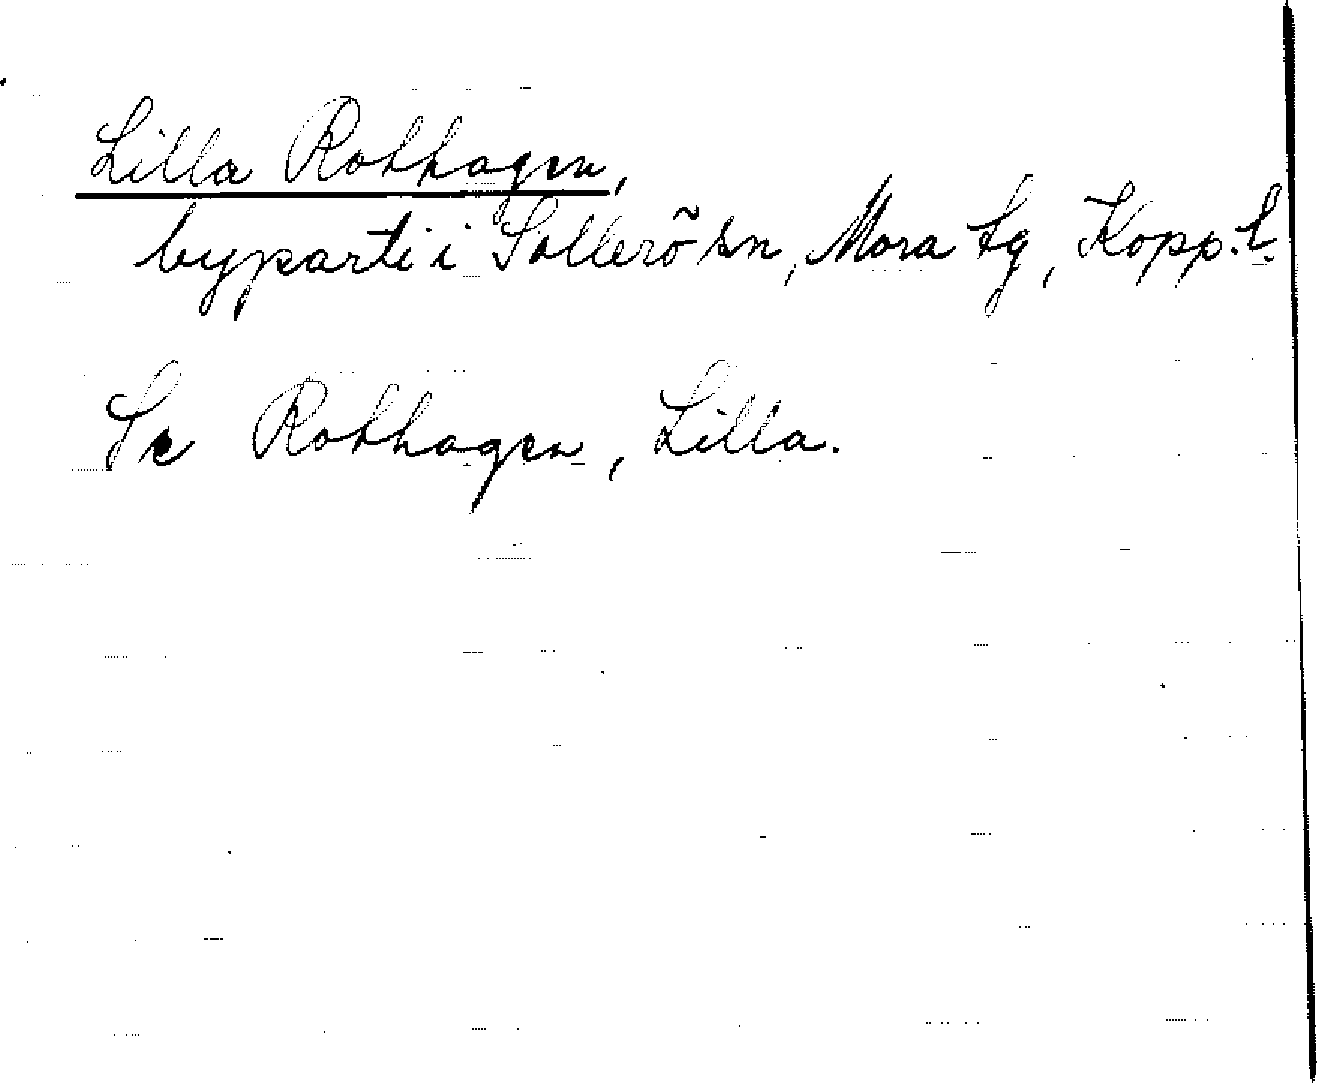 Lilla Rothagen,
byparti i Sollerö sn, Mora tg, Kopp. l.
Se Rothagen, Lilla.